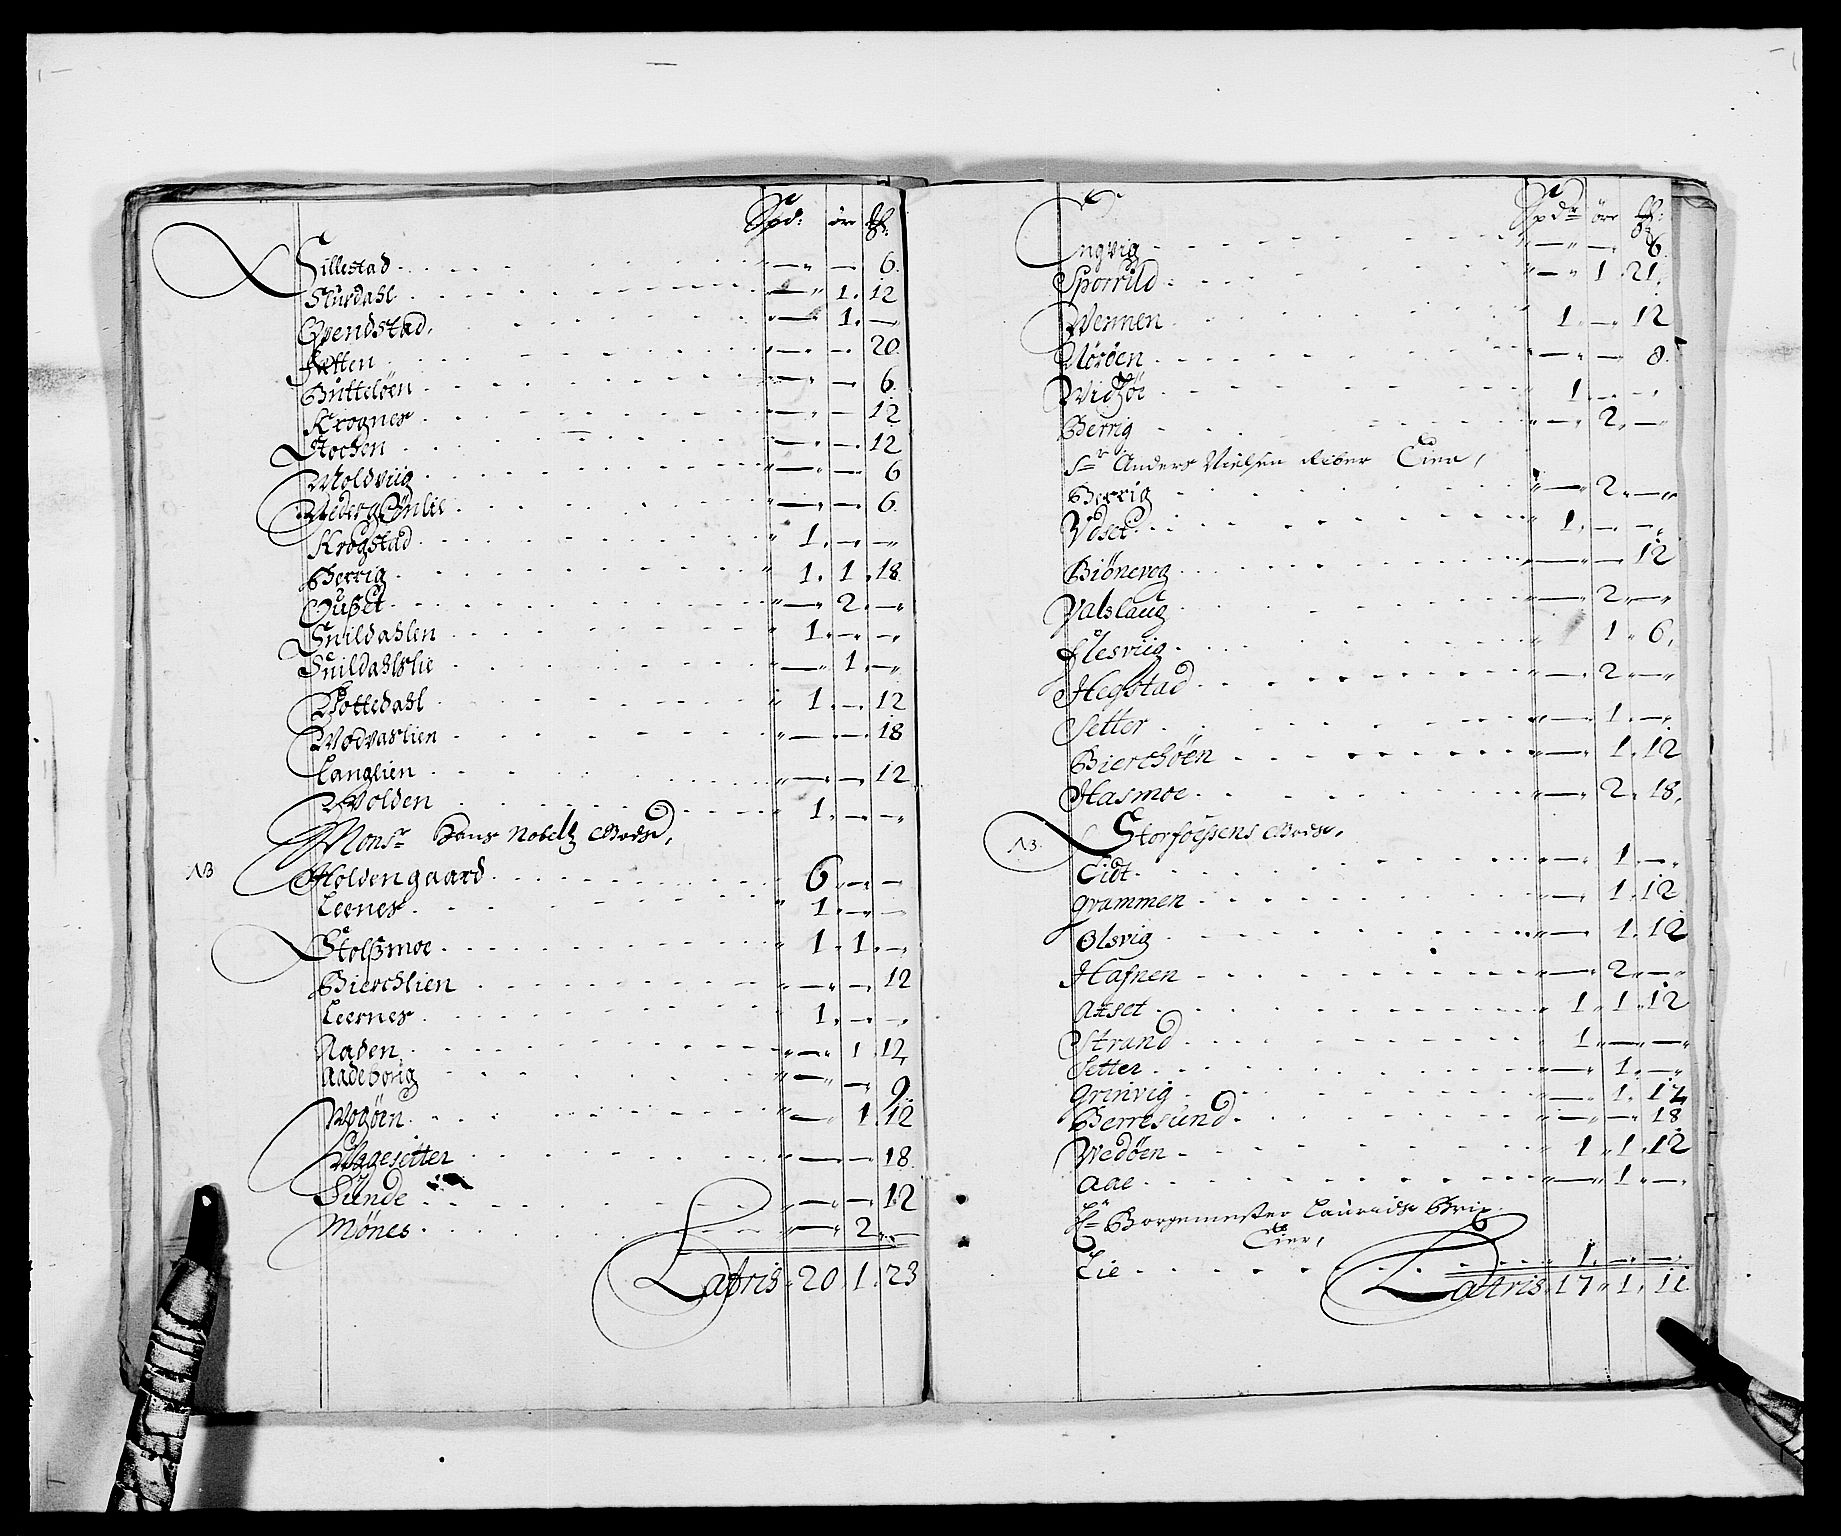 Spd: öre
Sillestad - - - 6.
Slurdahl - - 1. 12
Qvendstad. - - 1. -
Fætten - - - 20
Gutteløen - - - 6.
Krognes - - - 12
Hochen - - - 12
Moldviig - - - 6
Nedergiönlie - - - 6.
Krogstad - 1. - -
Berrig - 1. 1. 18
Oußet - - 2. -
Snildahlen - 1. - -
Snildahlslie - - 1. -
Pottedahl - 1. - 12
Wodvaslien - - - 18
Langlien - - - 12
Wolden - 1. - -
Monsr Hans Nobels Gods,
NB Holdengaard - 6. - -
Leenes - 1. - -
Stolßmoe - 1. 1. -
Bierchlien - - - 12
Leernes - 1. - -
Aaden - - 1. 12
Aadeborig - - - 9.
Wogöen - - 1. 12
Wagesetter - - - 18
Sunde - - - 12
Mönes - - 2. -
Latris. 20. 1. 23
Spdr öre
Engvig - - - 6.
Sporrild - - 1. 21.
Wennen - 1. - 12
Nöröen - - - 8.
Widsöe - 1. - -
Berrig - - 2. -
Sr Anders Nielsen Riber Eier,
Berrig - - 2. -
Ydset - 1. - -
Biöneveg - - - 12
Valslaug - - 2. -
Flesviig - 1. 6.
Hegstad - - 2. -
Setter - - 1. -
Bierchöen - - 1. 12
Hasmoe - - 2. 18.
NB. Storfoesens Gods.
Eidt - - 1. -
Grammen - - 1. 12
Olsvig - - 1. 12
Hafnen - - 2. -
Axset - 1. 1. 12
Strand - 1. - -
Setter - - 1. -
Grinvig - - 1. 12
Berresund - - - 18
Wedöen - 1. 1. 12
Aae - - 1. -
Hr Borgemester Lauridts Brix
Eier,
Lie - 1. - -
Latris. 17. 1. 11.